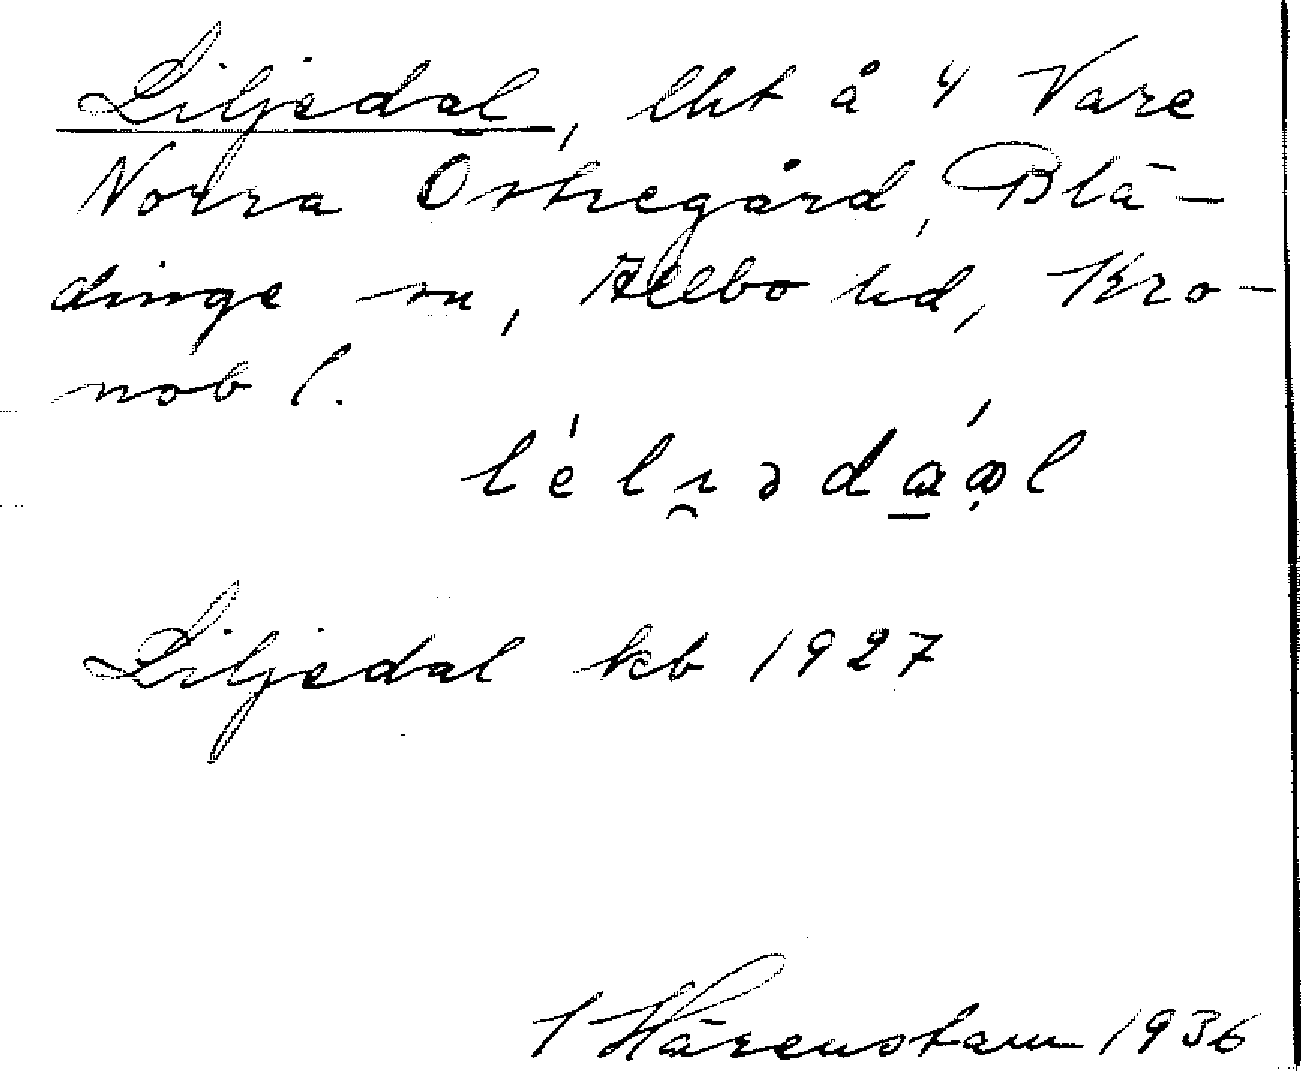 Liljedal, lht å 4 Vare
Norra Östregård, Blä-
dinge sn, Allbo hd, Kro-
nob l.
lélɪ̯ədɑ̱ɑ́l
Liljedal kb 1927
Härenstam 1936